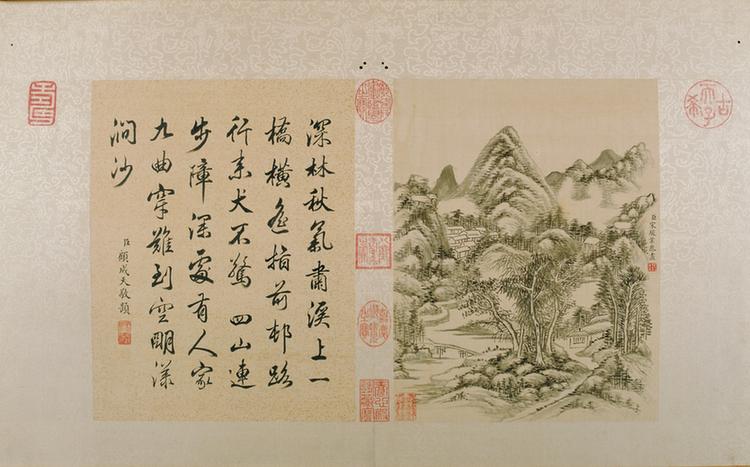 古希天子
臣宋駿業恭畫
深林秋氣肅溪上一
橋橫遙指前邨路
行來犬不驚四山連
步障深處有人家
九曲穿難到空明漾
澗沙
臣顧成天敬題